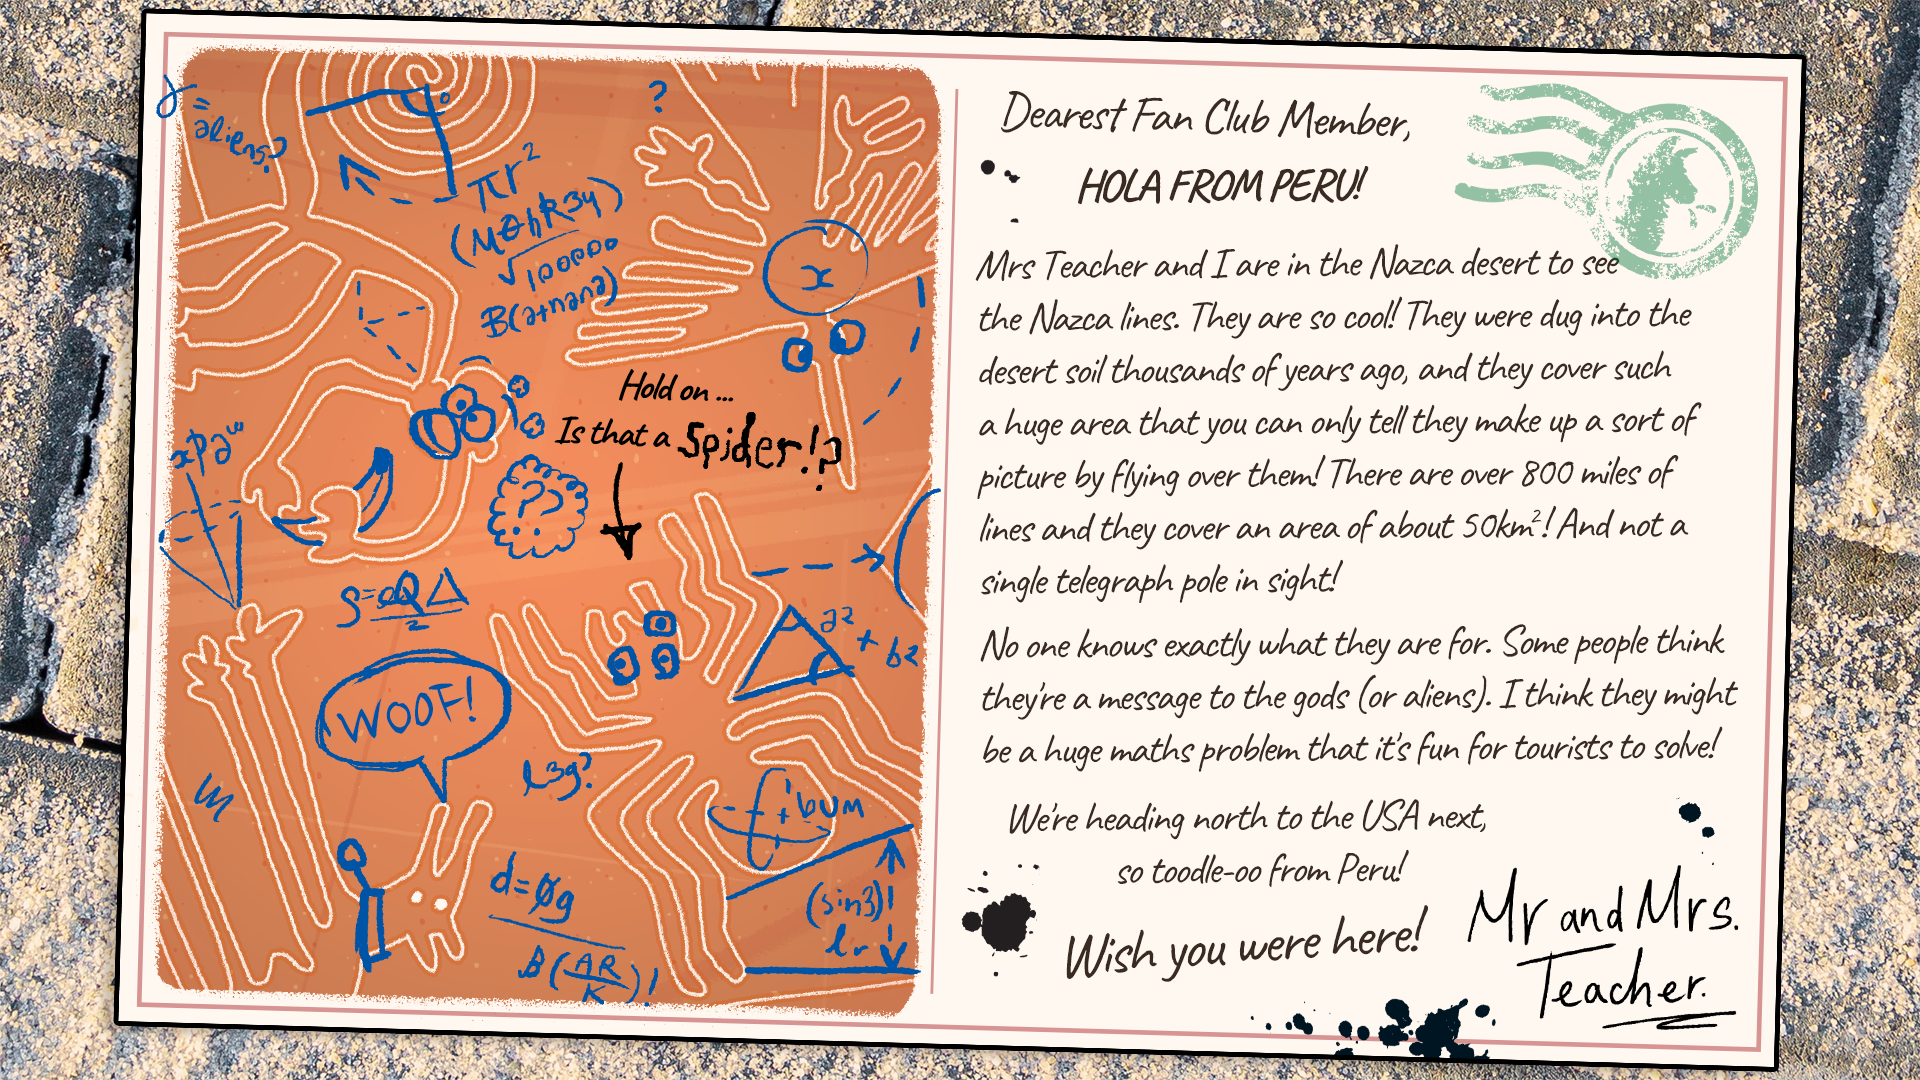 γ =
aliens?
?
πr²
(M0hk3y)
√100000
B(a+nana)
x
Hold on ...
Is that a Spider!?
??
S=
2
a² + b²
WOOF!
l3g?
bum
d=øg
B(AR/K)!
(sin3)
Dearest Fan Club Member,
HOLA FROM PERU!
Mrs Teacher and I are in the Nazca desert to see
the Nazca lines. They are so cool! They were dug into the
desert soil thousands of years ago, and they cover such
a huge area that you can only tell they make up a sort of
picture by flying over them! There are over 800 miles of
lines and they cover an area of about 50km²! And not a
single telegraph pole in sight!
No one knows exactly what they are for. Some people think
they're a message to the gods (or aliens). I think they might
be a huge maths problem that it's fun for tourists to solve!
We're heading north to the USA next,
so toodle-oo from Peru!
Wish you were here!
Mr and Mrs.
Teacher.